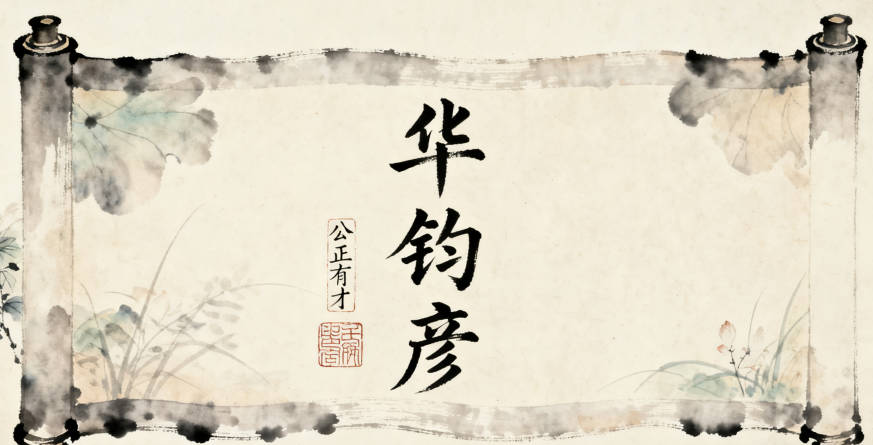 华钧彦
公正有才